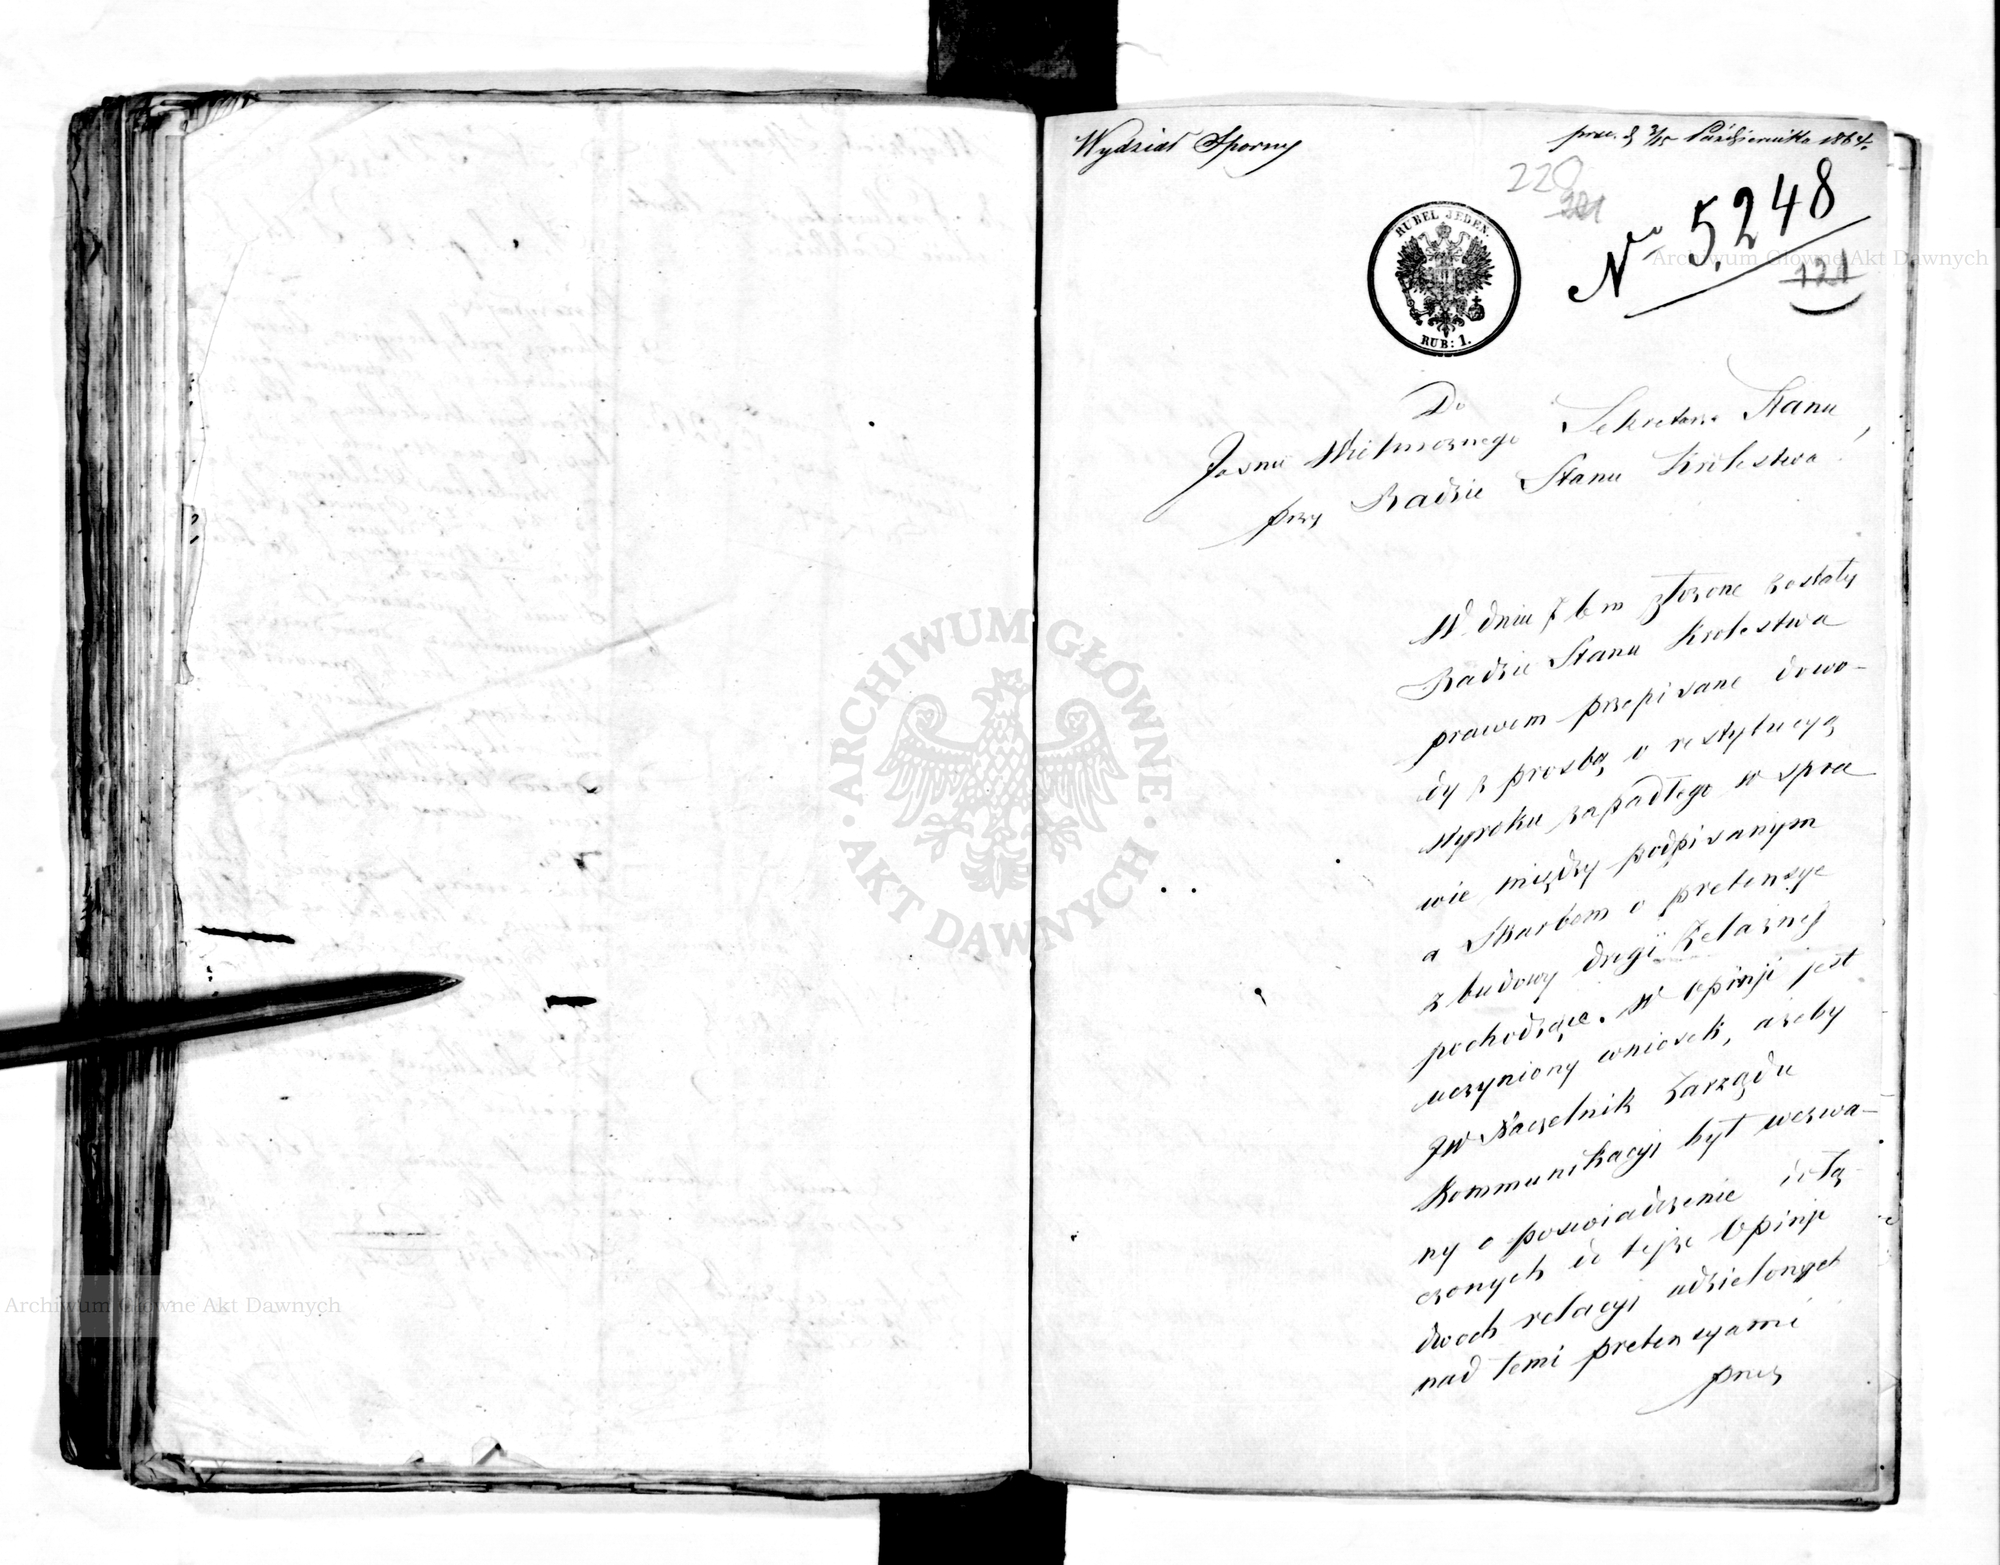 Wydział Sporny
prez. d 3/15 Października 1864.
220
221
No 5,248
121
RUBEL JEDEN.
RUB: 1.
Do
Jaśnie Wielmożnego Sekretarza Stanu
przy Radzie Stanu Królestwa
W dniu 7 b m złożone zostały
Radzie Stanu Krolestwa
prawem przepisane dowo-
dy z prosbą o restytucyą
wyroku zapadłego w spra
wie między podpisanym
a Skarbem o pretensye
z budowy drogi Żelaznej
pochodzące. W Opinji jest
uczyniony wniosek, ażeby
JW Naczelnik Zarządu
Kommunikacyi był wezwa-
ny o poswiadczenie dołą-
czonych do tejże Opinji
dwoch relacyi udzielonych
nad temi pretensyami
przez
ARCHIWUM GŁÓWNE
AKT DAWNYCH
Archiwum Główne Akt Dawnych
Archiwum Główne Akt Dawnych